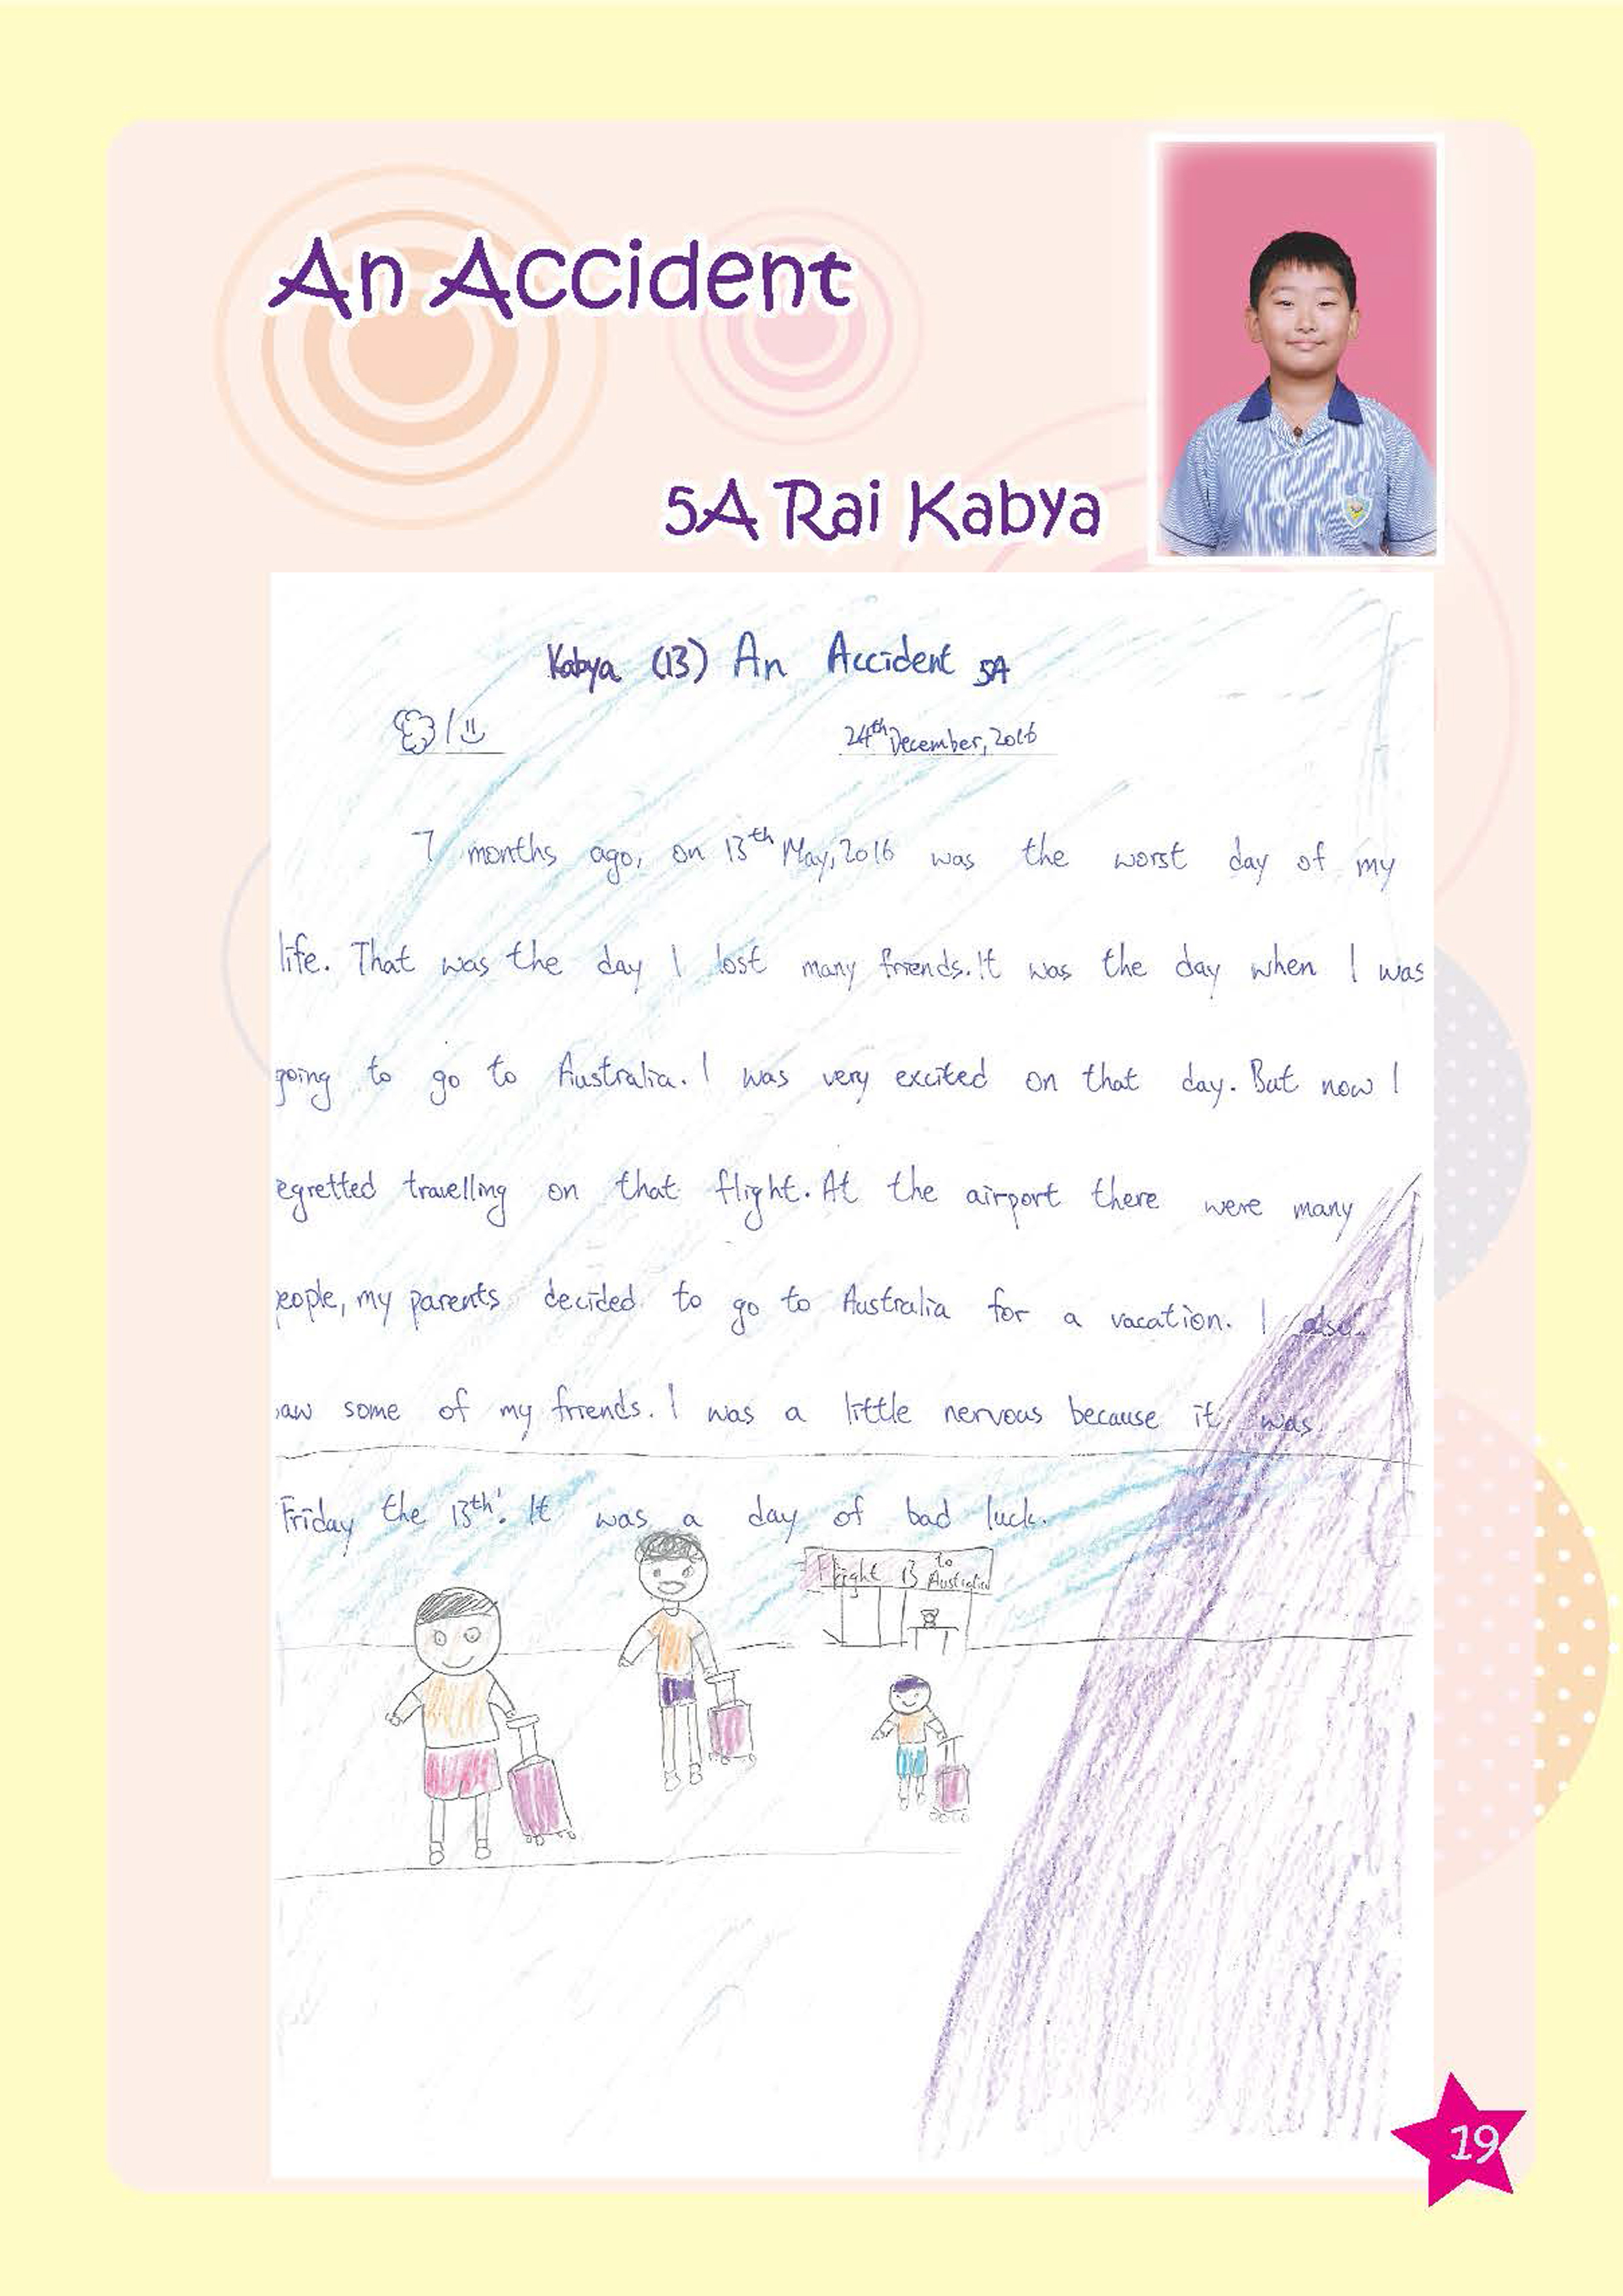 An Accident
5A Rai Kabya
Kabya (13) An Accident 5A
24th December, 2016
7 months ago, on 13th May, 2016 was the worst day of my
life. That was the day I lost many friends. It was the day when I was
going to go to Australia. I was very excited on that day. But now I
egretted travelling on that flight. At the airport there were many
eople, my parents decided to go to Australia for a vacation. I also
aw some of my friends. I was a little nervous because it was
Friday the 13th! It was a day of bad luck.
Flight 13 to Australia
19